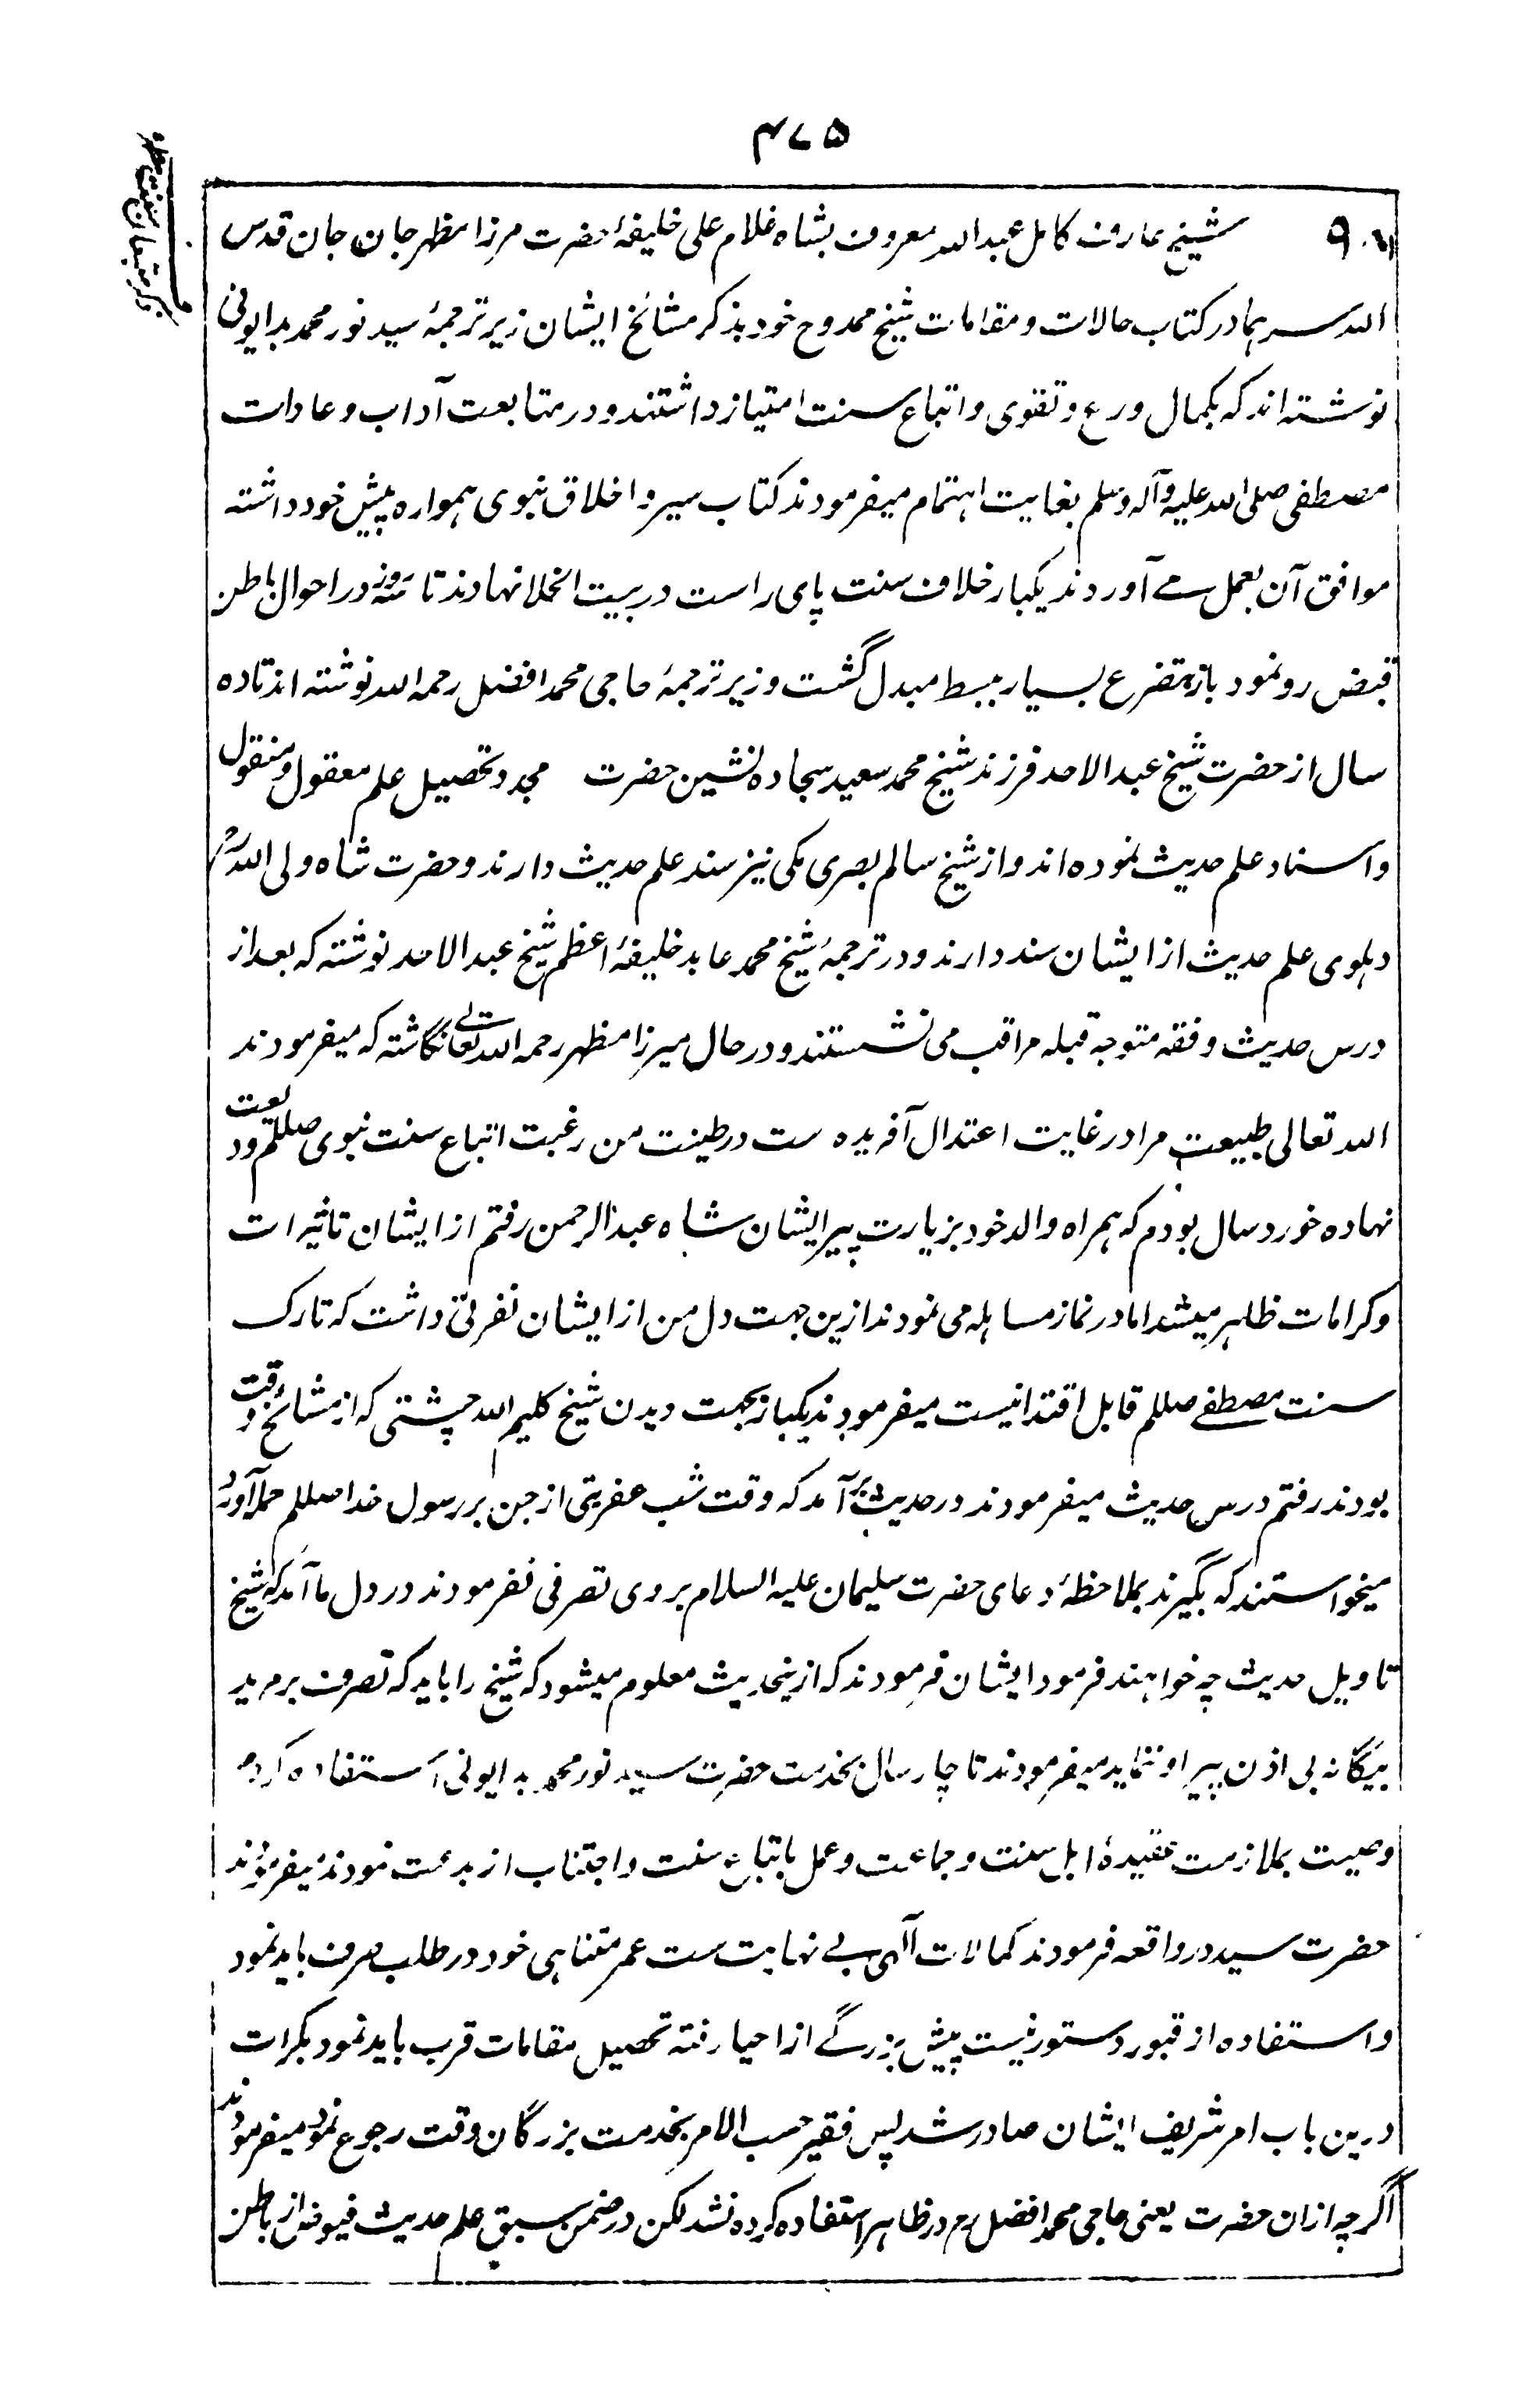 ۴۷۵
شیخ عارف کامل عبد الله معروف بشاه غلام علی خلیفهٔ حضرت مرزا مظهر جان جان قدس
الله سرهما در کتاب حالات و مقامات شیخ ممدوح خود بذکر مشائخ ایشان زیر ترجمهٔ سید نور محمد بدایونی
نوشته اند که بکمال ورع و تقوی و اتباع سنت امتیاز داشتند و در متابعت آداب و عادات
مصطفی صلی الله علیه وآله وسلم بغایت اهتمام میفرمودند کتاب سیر و اخلاق نبوی همواره پیش خود داشته
موافق آن بعمل مے آوردند یکبار خلاف سنت پای راست در بیت الخلا نهادند تا سه روز در احوال باطن
قبض رو نمود باز بتضرع بسیار ببسط مبدل گشت و زیر ترجمهٔ حاجی محمد افضل رحمه الله نوشته اند تا ده
سال از حضرت شیخ عبد الاحد فرزند شیخ محمد سعید سجاده نشین حضرت مجدد تحصیل علم معقول و منقول
و اسناد علم حدیث نموده اند و از شیخ سالم بصری مکی نیز سند علم حدیث دارند و حضرت شاه ولی الله
دهلوی علم حدیث از ایشان سند دارند و در ترجمهٔ شیخ محمد عابد خلیفهٔ اعظم شیخ عبد الاحد نوشته که بعد از
درس حدیث و فقه متوجه قبله مراقب می نشستند و در حال میرزا مظهر رحمه الله تعالے نگاشته که میفرمودند
الله تعالی طبیعت مرا در غایت اعتدال آفریده ست در طینت من رغبت اتباع سنت نبوی صللم ودیعت
نهاده خورد سال بودم که همراه والد خود بزیارت پیر ایشان شاه عبد الرحمن رفتم از ایشان تاثیرات
و کرامات ظاهر میشد اما در نماز مساهله می نمودند ازین جهت دل من از ایشان نفرتی داشت که تارک
سنت مصطفے صللم قابل اقتدا نیست میفرمودند یکبار بجهت دیدن شیخ کلیم الله چشتی که از مشائخ وقت
بودند رفتم درس حدیث میفرمودند در حدیث برآمد که وقت شب عفریتی از جن بر رسول خدا صللم حمله آورد
میخواستند که بگیرند بملاحظهٔ دعای حضرت سلیمان علیه السلام بروی تصرفی نفرمودند در دل ما آمد که شیخ
تاویل حدیث چه خواهند فرمود ایشان فرمودند که ازینحدیث معلوم میشود که شیخ را باید که تصرف بر مرید
بیگانه بی اذن پیر او ننماید میفرمودند تا چار سال بخدمت حضرت سید نور محمد بدایونی استفاده کردم
وصیت بملازمت عقیدهٔ اهل سنت و جماعت و عمل باتباع سنت و اجتناب از بدعت نمودند میفرمودند
حضرت سید در واقعه فرمودند کمالات آلهی بے نهایت ست عمر متناهی خود در طلب صرف باید نمود
و استفاده از قبور دستور نیست پیش بزرگے از احیا رفته تحصیل مقامات قرب باید نمود بکرات
درین باب امر شریف ایشان صادر شد پس فقیر حسب الامر بخدمت بزرگان وقت رجوع نمود میفرمودند
اگرچه از ان حضرت یعنی حاجی محمد افضل رح در ظاهر استفاده کرده نشد لکن در ضمن سبق علم حدیث فیوض از باطن